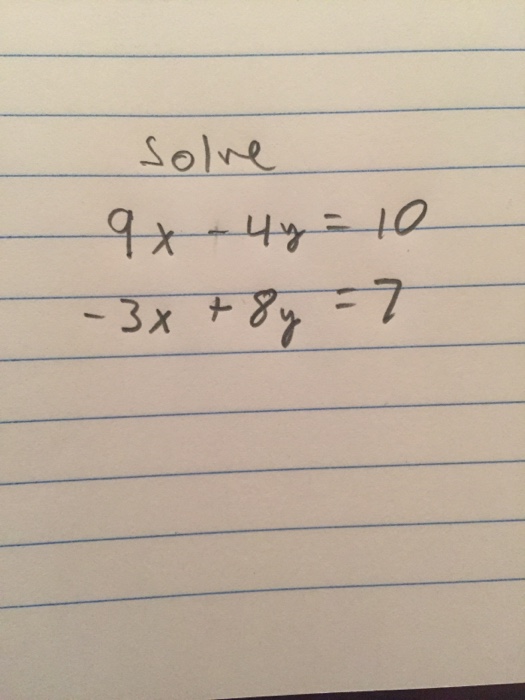 Solve
9x - 4y = 10
-3x + 8y = 7